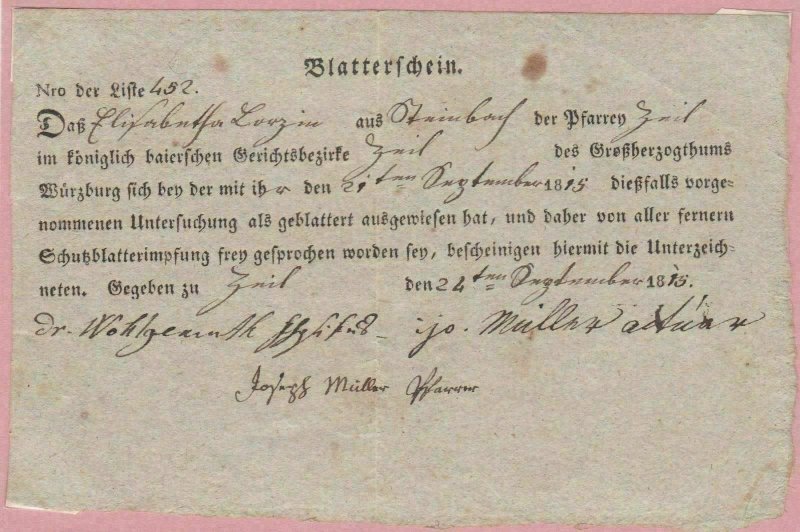 Blatterschein.
Nro der Liste 452.
Daß Elisabetha Lorzin aus Steinbach der Pfarrey Zeil
im königlich baierschen Gerichtsbezirke Zeil des Großherzogthums
Würzburg sich bey der mit ihr den 21ten September 1815 dießfalls vorge-
nommenen Untersuchung als geblattert ausgewiesen hat, und daher von aller fernern
Schutzblatterimpfung frey gesprochen worden sey, bescheinigen hiermit die Unterzeich-
neten. Gegeben zu Zeil den 24ten September 1815.
dr. Wohlgemuth Jo. Müller actuar
Joseph Müller Pfarrer